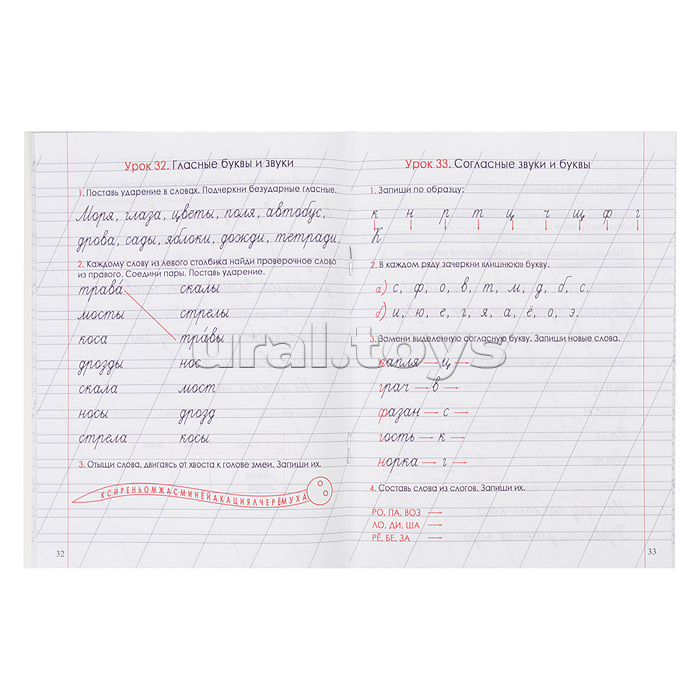 Урок 32. Гласные буквы и звуки
1. Поставь ударение в словах. Подчеркни безударные гласные.
Моря, глаза, цветы, поля, автобус,
дрова, сады, яблоки, дожди, тетради.
2. Каждому слову из левого столбика найди проверочное слово
из правого. Соедини пары. Поставь ударение.
трава́ скалы
мосты стрелы
коса тра́вы
дрозды нос
скала мост
носы дрозд
стрела косы
3. Отыщи слова, двигаясь от хвоста к голове змеи. Запиши их.
КСИРЕНЬОМЖАСМИНЕЙАКАЦИЯЛЧЕРЁМУХА
32
Урок 33. Согласные звуки и буквы
1. Запиши по образцу:
к н р т щ ч щ ф г
К
2. В каждом ряду зачеркни «лишнюю» букву.
а) с, ф, о, в, т, м, д, б, с.
б) и, ю, е, г, я, а, ё, о, э.
3. Замени выделенную согласную букву. Запиши новые слова.
капля — ц —
грач — в —
фазан — с —
гость — к —
норка — г —
4. Составь слова из слогов. Запиши их.
РО, ПА, ВОЗ —
ЛО, ДИ, ША —
РЁ, БЕ, ЗА —
33
ural.toys